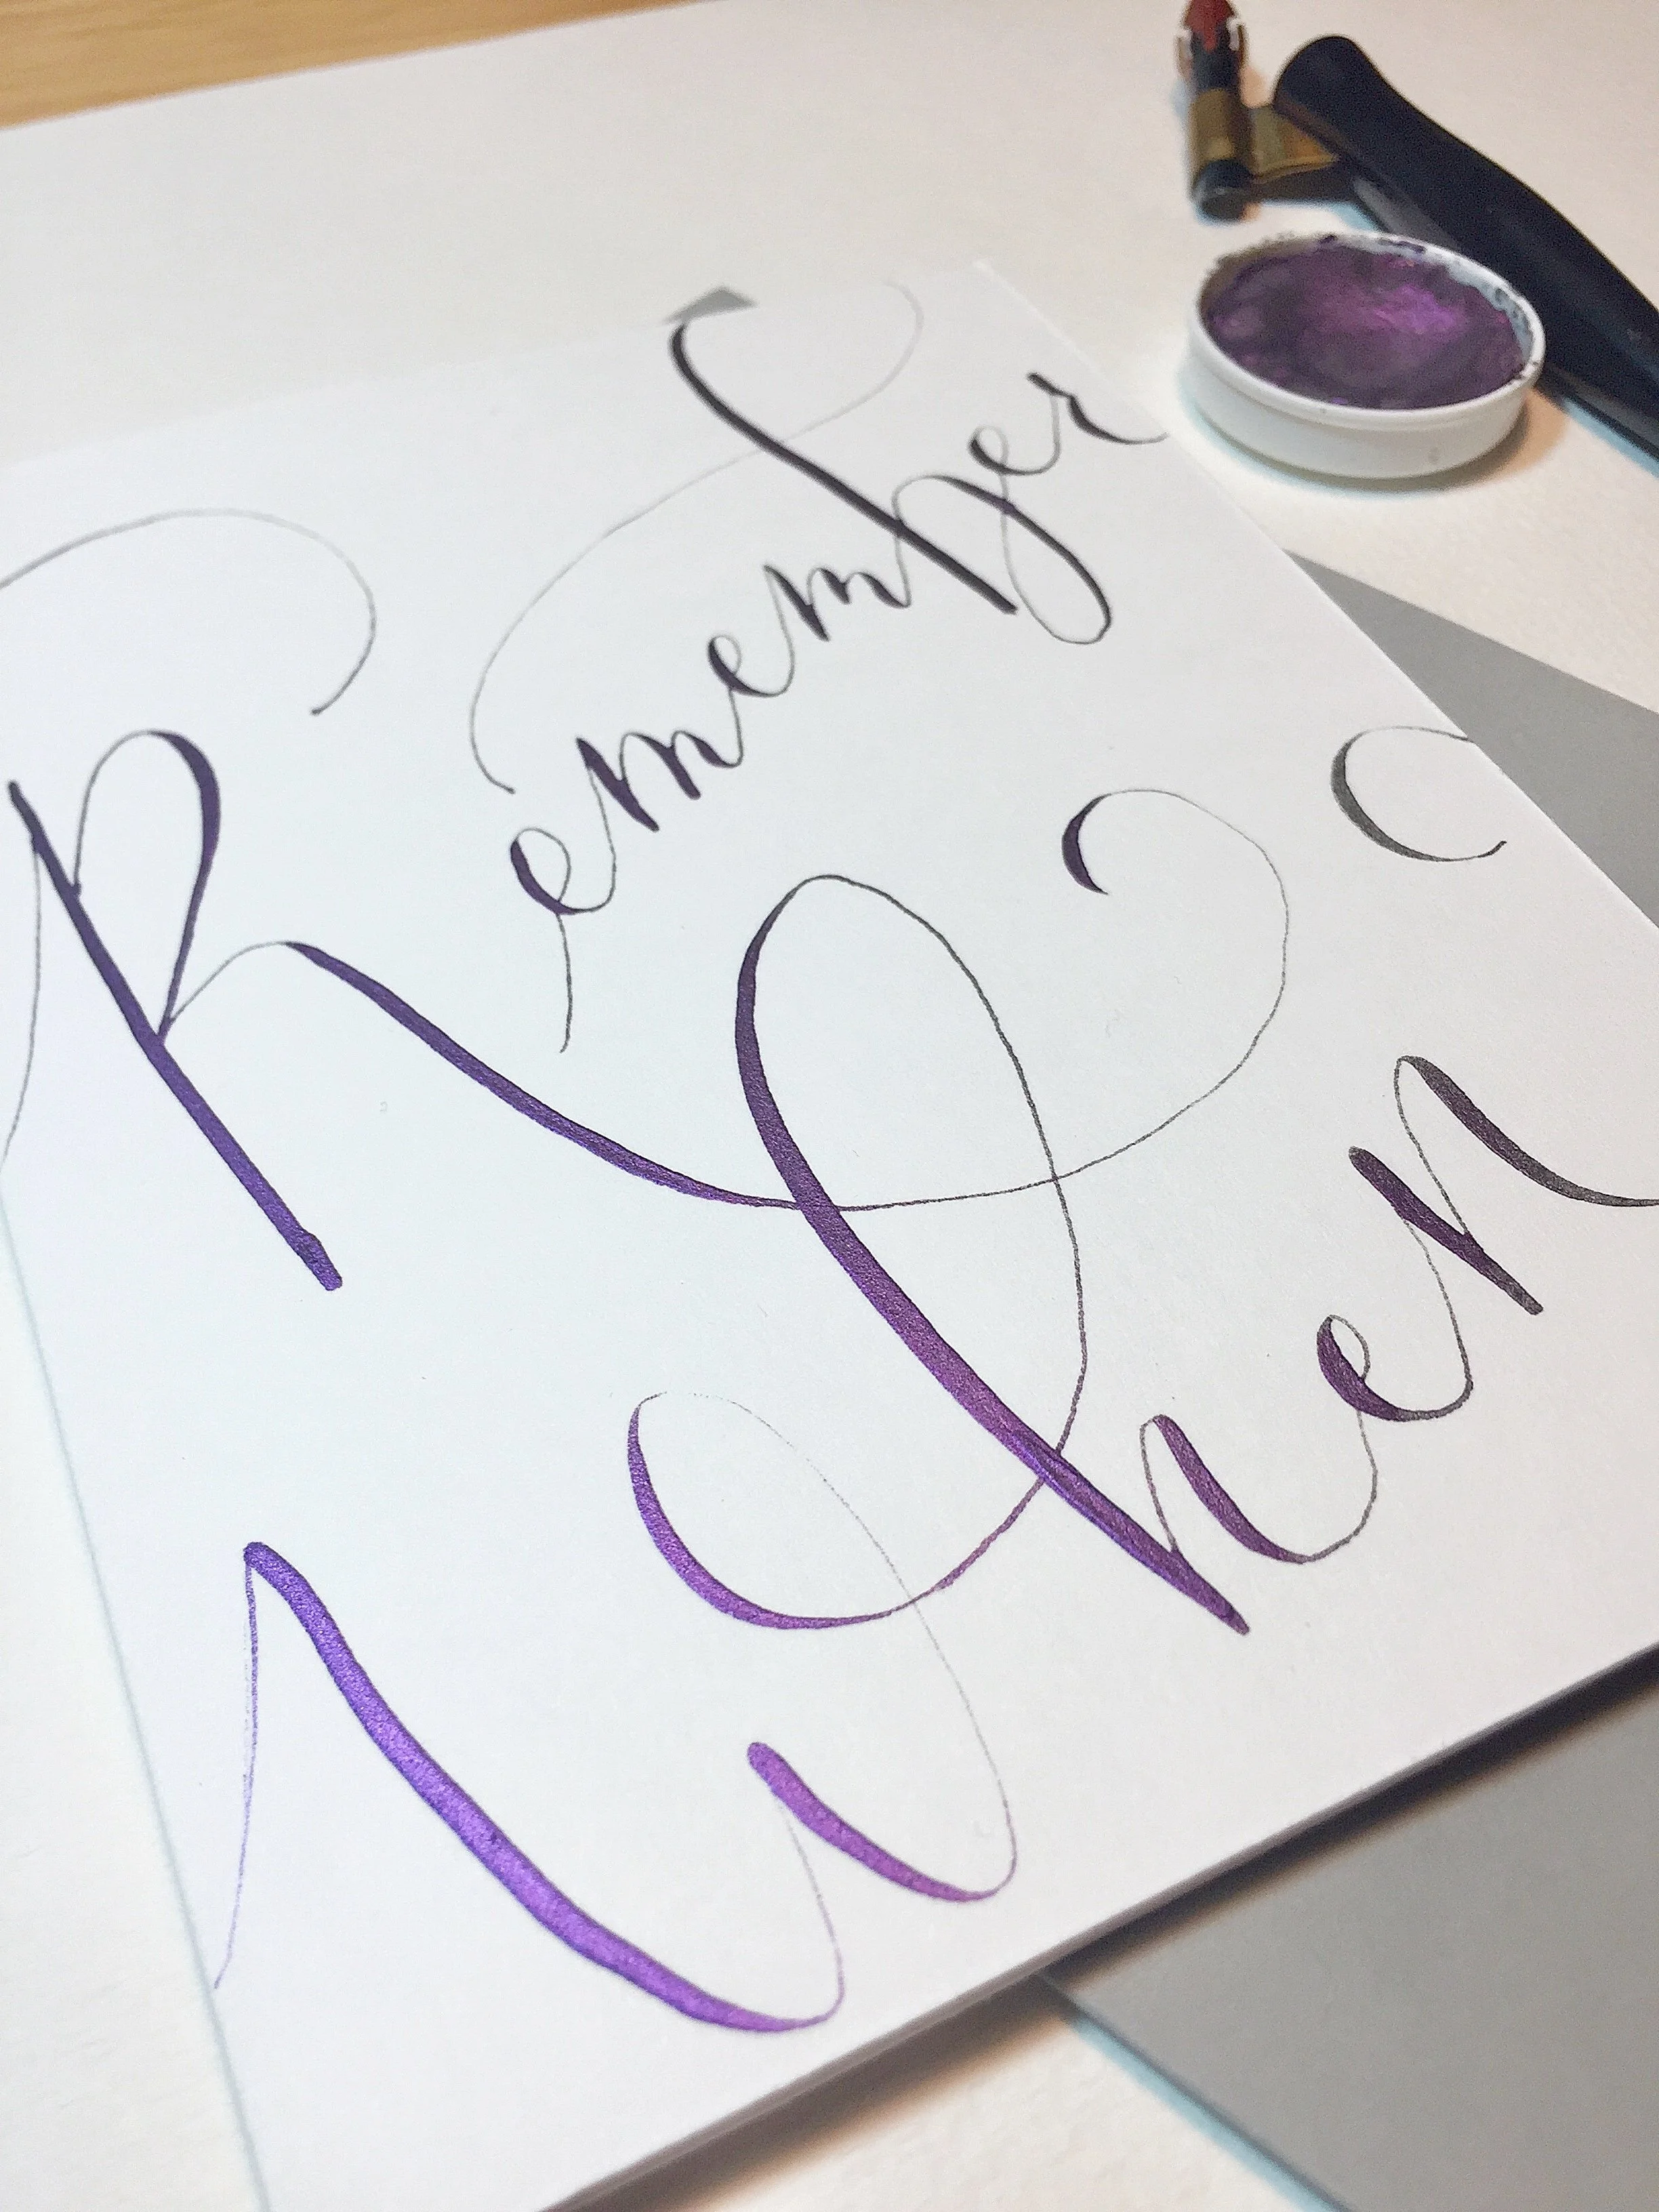 Remember
When